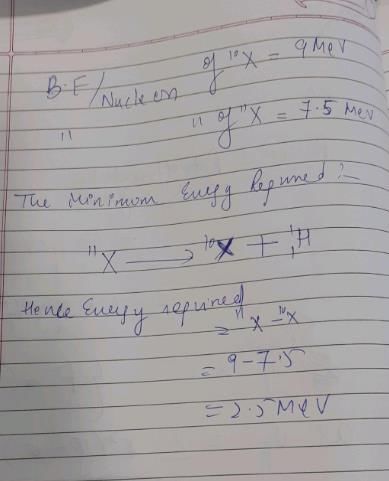 B.E/Nucleon of ¹⁰X = 9 MeV
" " of ¹¹X = 7.5 MeV
The Minimum Energy Required :-
¹¹X ⟶ ¹⁰X + ¹₁H
Hence Energy required
= ¹¹X - ¹⁰X
= 9-7.5
= 2.5 MeV